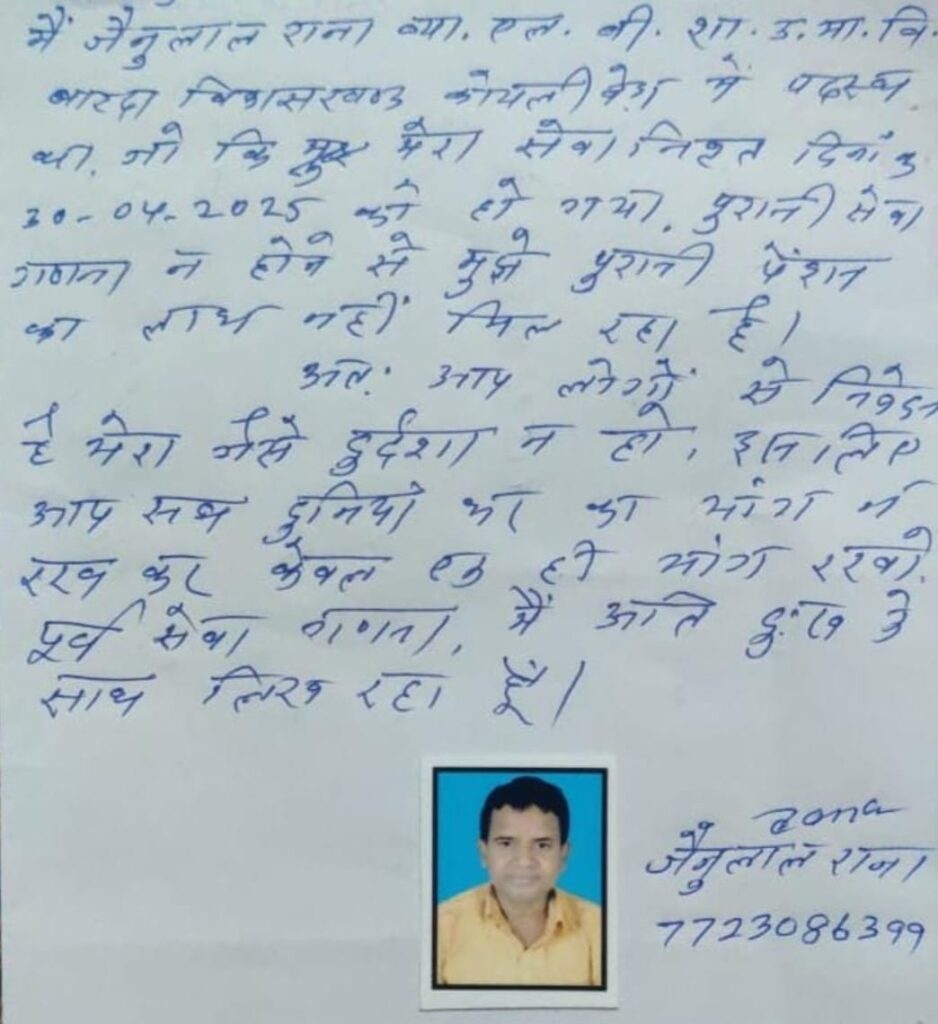 मैं जैनुलाल राना व्या. एल. बी. शा. उ. मा. वि.
बारदा विकासखण्ड कोयलीबेड़ा में पदस्थ
था, जो कि मेरा सेवा निवृत दिनांक
30-04-2025 को हो गया, पुरानी सेवा
गणना न होने से मुझे पुरानी पेंशन
का लाभ नहीं मिल रहा है।
अतः आप लोगों से निवेदन
है मेरा जैसे दुर्दशा न हो, इसलिए
आप सब दुनियां भर का मांग न
रख कर केवल एक ही मांग रखो,
पूर्व सेवा गणना, मैं अति दुःख के
साथ लिख रहा हूँ।
जैनुलाल राना
7723086399